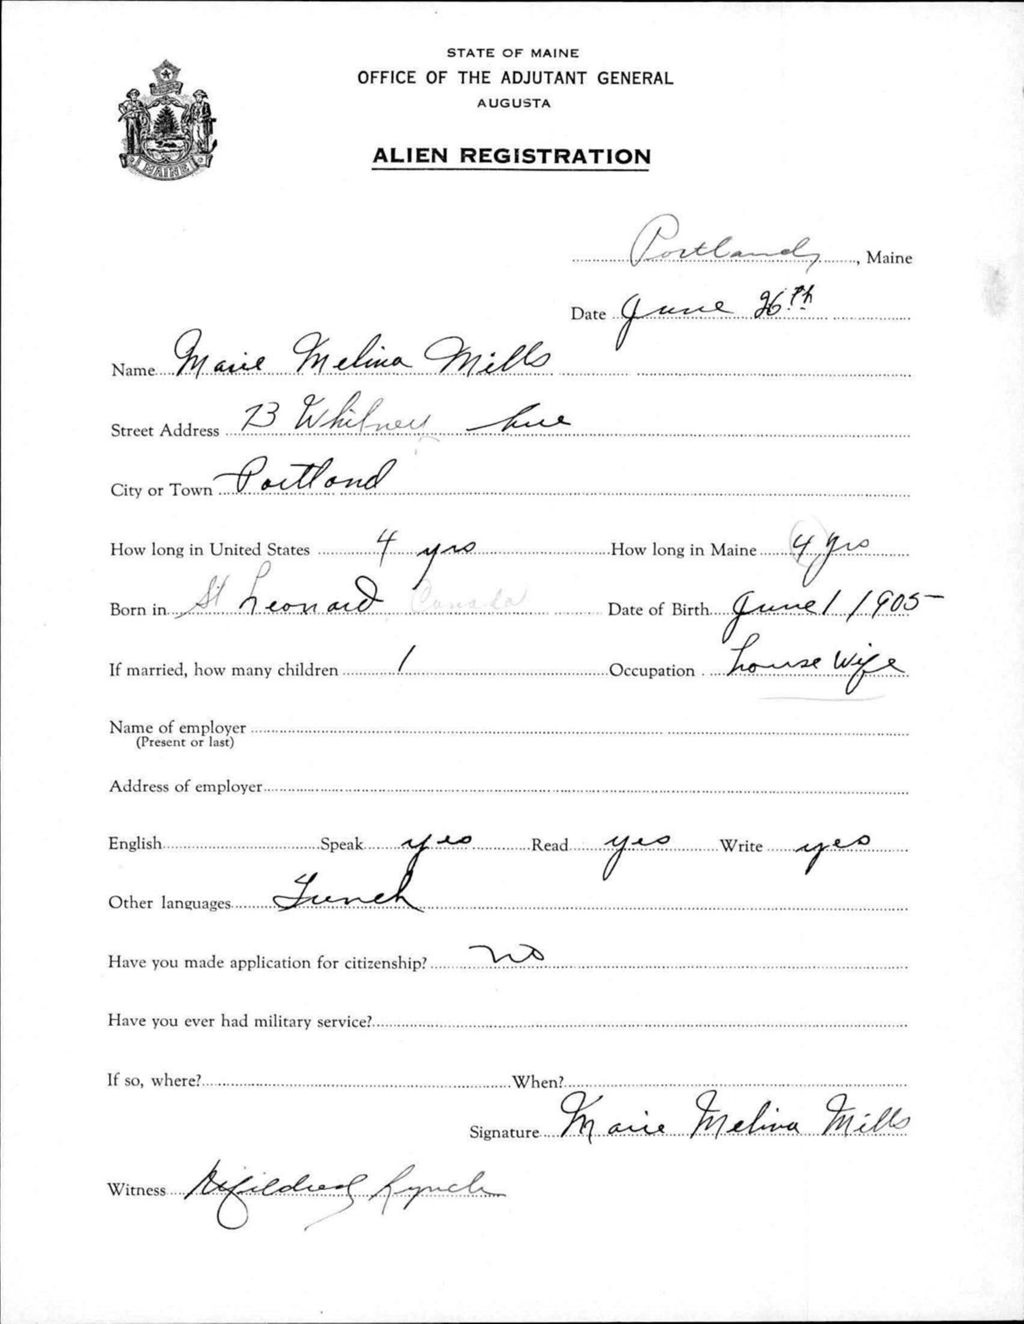 STATE OF MAINE
OFFICE OF THE ADJUTANT GENERAL
AUGUSTA
ALIEN REGISTRATION
MAINE
Portland, Maine
Date June 26th
Name Marie Melina Mills
Street Address 73 Whitney Ave
City or Town Portland
How long in United States 4 yrs How long in Maine 4 yrs
Born in St Leonard Canada Date of Birth June 1 1905
If married, how many children 1 Occupation house wife
Name of employer
(Present or last)
Address of employer
English Speak yes Read yes Write yes
Other languages French
Have you made application for citizenship? no
Have you ever had military service?
If so, where? When?
Signature Marie Melina Mills
Witness Mildred Lynch